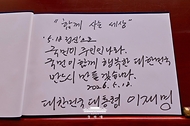 "함께 사는 세상"
'5.18 정신'으로
국민이 주인인 나라,
국민이 함께 행복한 대한민국
반드시 만들겠습니다.
2026. 5. 12.
대한민국 대통령 이재명